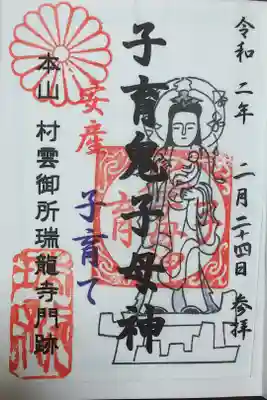 令和二年 二月二十四日 参拝
子育鬼子母神
安産
子育て
本山 村雲御所瑞龍寺門跡